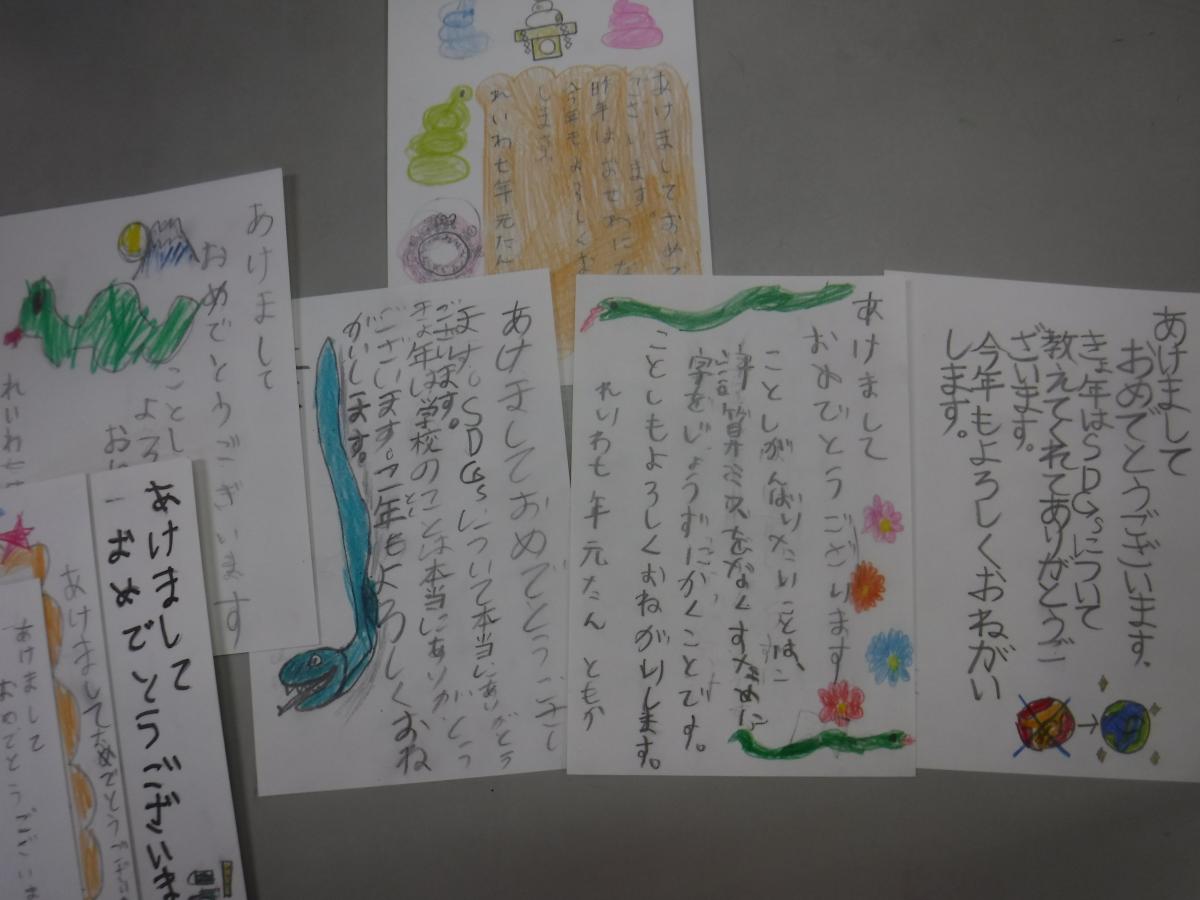 あけましておめで
ございます
昨年はおせわにな
今年もよろしくお
します
れいわ七年元たん
あけまして
おめでとうございます
ことし
よろ
おね
れいわ七
あけまして
おめでとうございま
あけましておめでとうござい
あけまして
おめでとうございま
あけましておめでとうござい
ます。SDGsについて本当にありがとう
ございます。
きょ年は学校のことは本当にありがとう
ございます。こ年もよろしくおね
がいします。
あけまして
おめでとうございます
ことしがんばりたいことは、
字をじょうずにかくことです。
ことしもよろしくおねがいします。
れいわ七年元たん ともか
あけまして
おめでとうございます。
きょ年はSDGsについて
教えてくれてありがとうご
ざいます。
今年もよろしくおねがい
します。